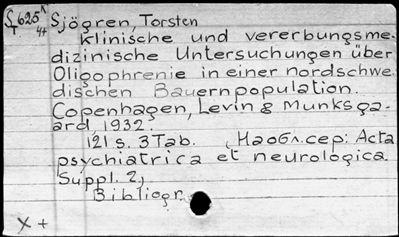 S625 Sjögren, Torsten
4+
klinische und vererbungsme-
dizinische Untersuchungen über
Oligophrenie in einer nordschwe-
dischen Bauernpopulation.
Copenhagen, Levin & Munksga-
ard, 1932.
121 s. 3 Tab. (На обл. сер: Acta
psychiatrica et neurologica.
Suppl. 2)
Bibliogr.
X +